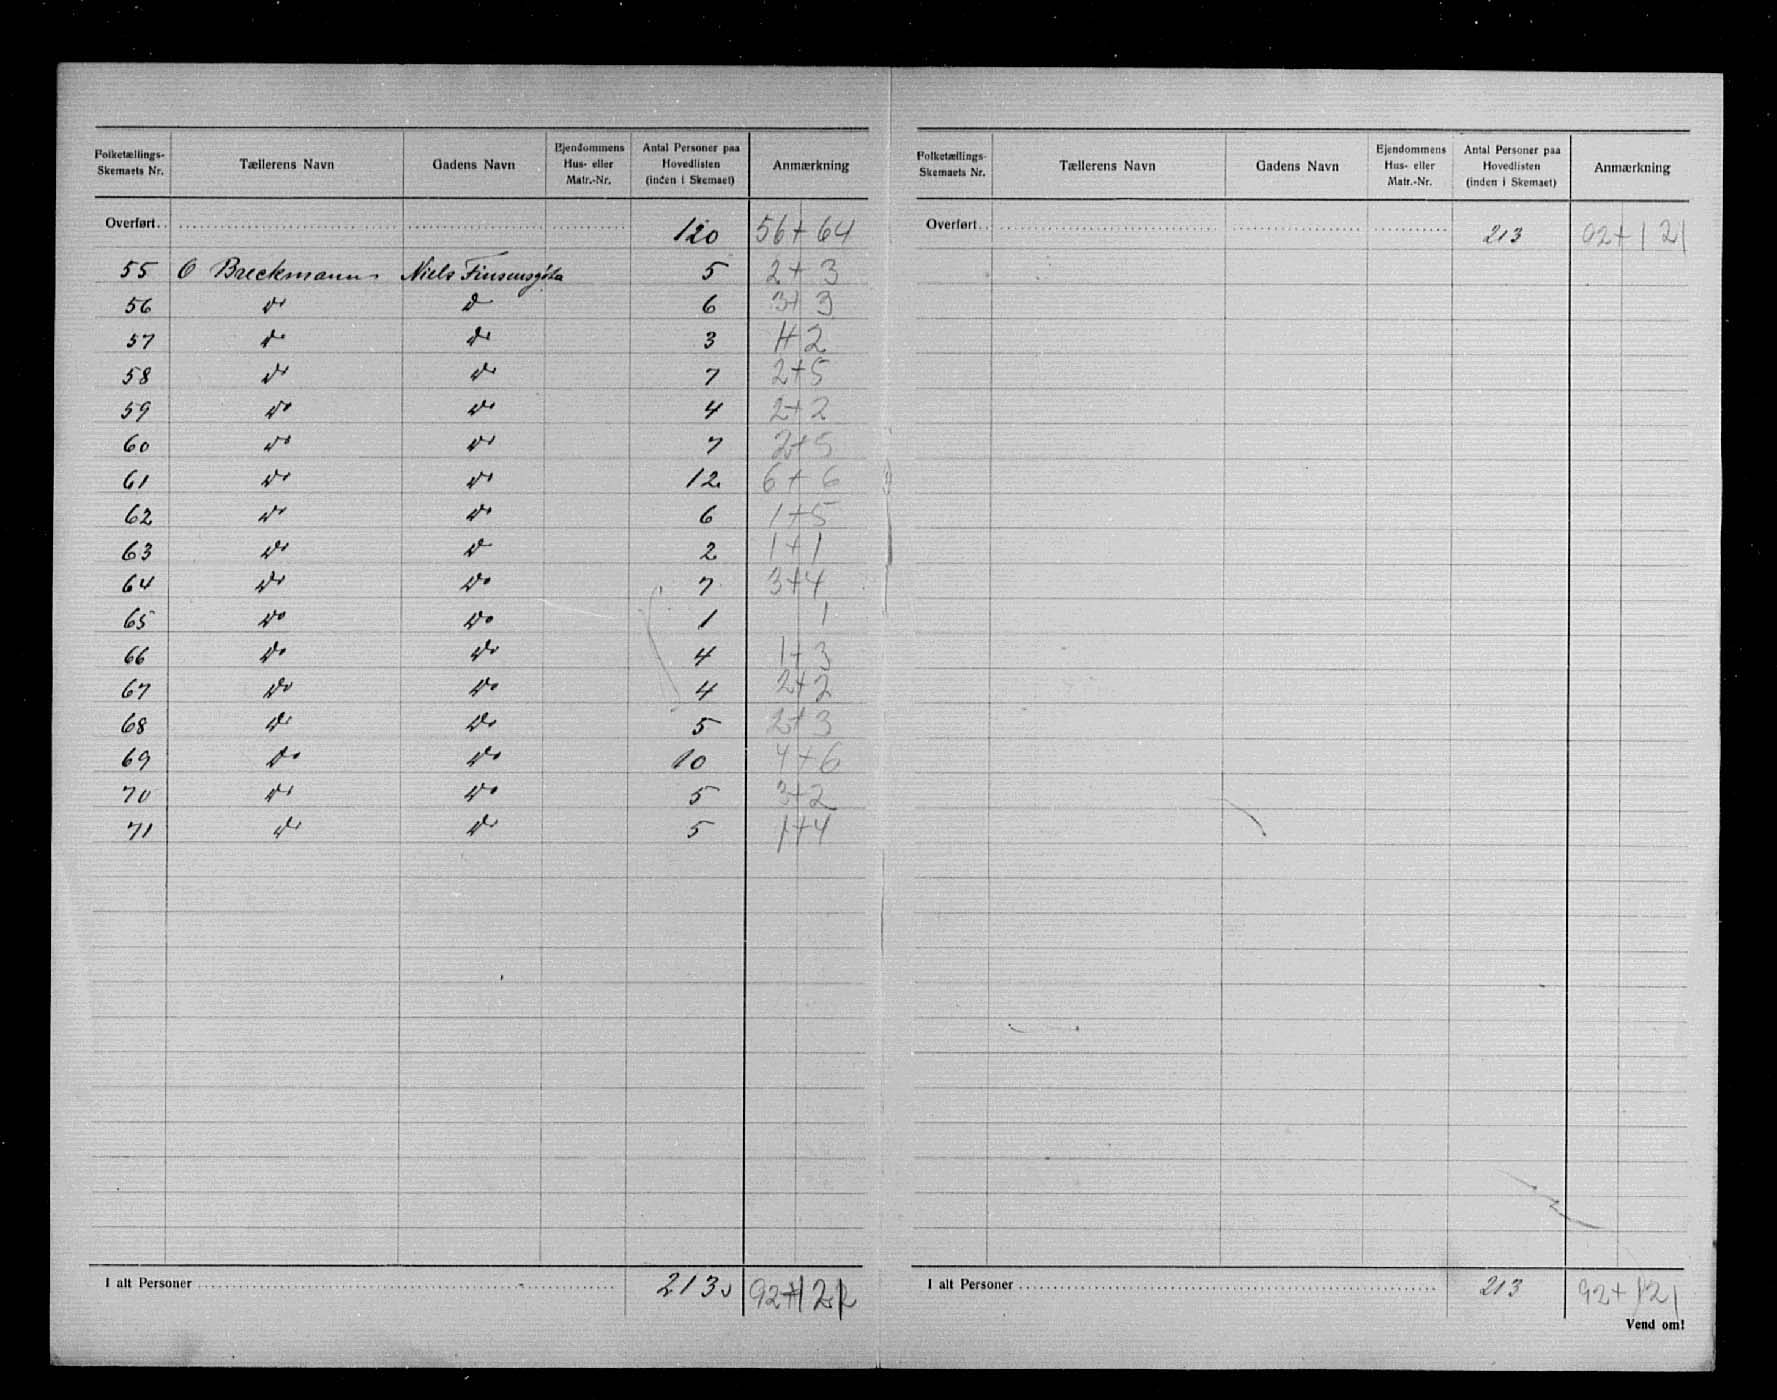 Folketællings-Skemaets Nr. Tællerens Navn Gadens Navn Ejendommens Hus- eller Matr.-Nr. Antal Personer paa Hovedlisten (inden i Skemaet) Anmærkning
Overført 120 56+64
55 O Breckmann Niels Finsensgöta 5 2+3
56 do do 6 3+3
57 do do 3 1+2
58 do do 7 2+5
59 do do 4 2+2
60 do do 7 2+5
61 do do 12 6+6
62 do do 6 1+5
63 do do 2 1+1
64 do do 7 3+4
65 do do 1 1
66 do do 4 1+3
67 do do 4 2+2
68 do do 5 2+3
69 do do 10 4+6
70 do do 5 3+2
71 do do 5 1+4
I alt Personer 213
Folketællings-Skemaets Nr. Tællerens Navn Gadens Navn Ejendommens Hus- eller Matr.-Nr. Antal Personer paa Hovedlisten (inden i Skemaet) Anmærkning
Overført 213 92+121
I alt Personer 213 92+121
Vend om!